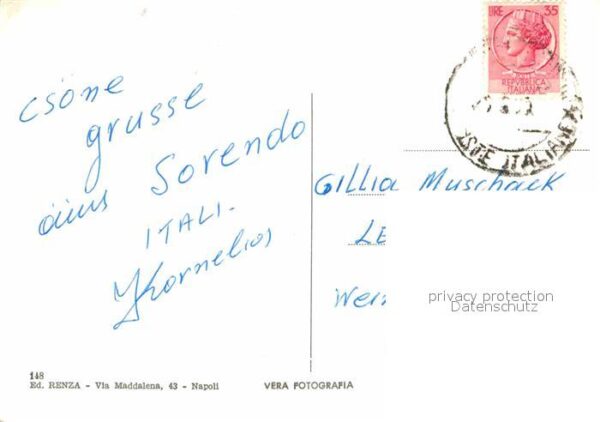 LIRE 35
REPVBBLICA
ITALIANA
OSTE ITALIANE
csöne
grusse
aius Sorendo
ITALI.
Kornelios
GILLIA Muschack
LE
Wer
privacy protection
Datenschutz
148
Ed. RENZA - Via Maddalena, 43 - Napoli
VERA FOTOGRAFIA